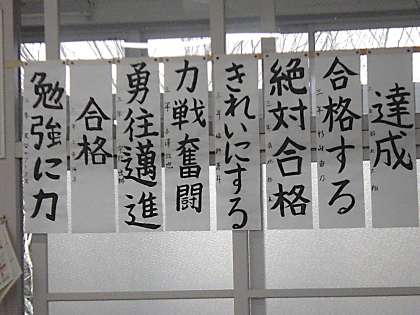 達成
合格する
絶対合格
きれいにする
力戦奮闘
勇往邁進
合格
勉強に力